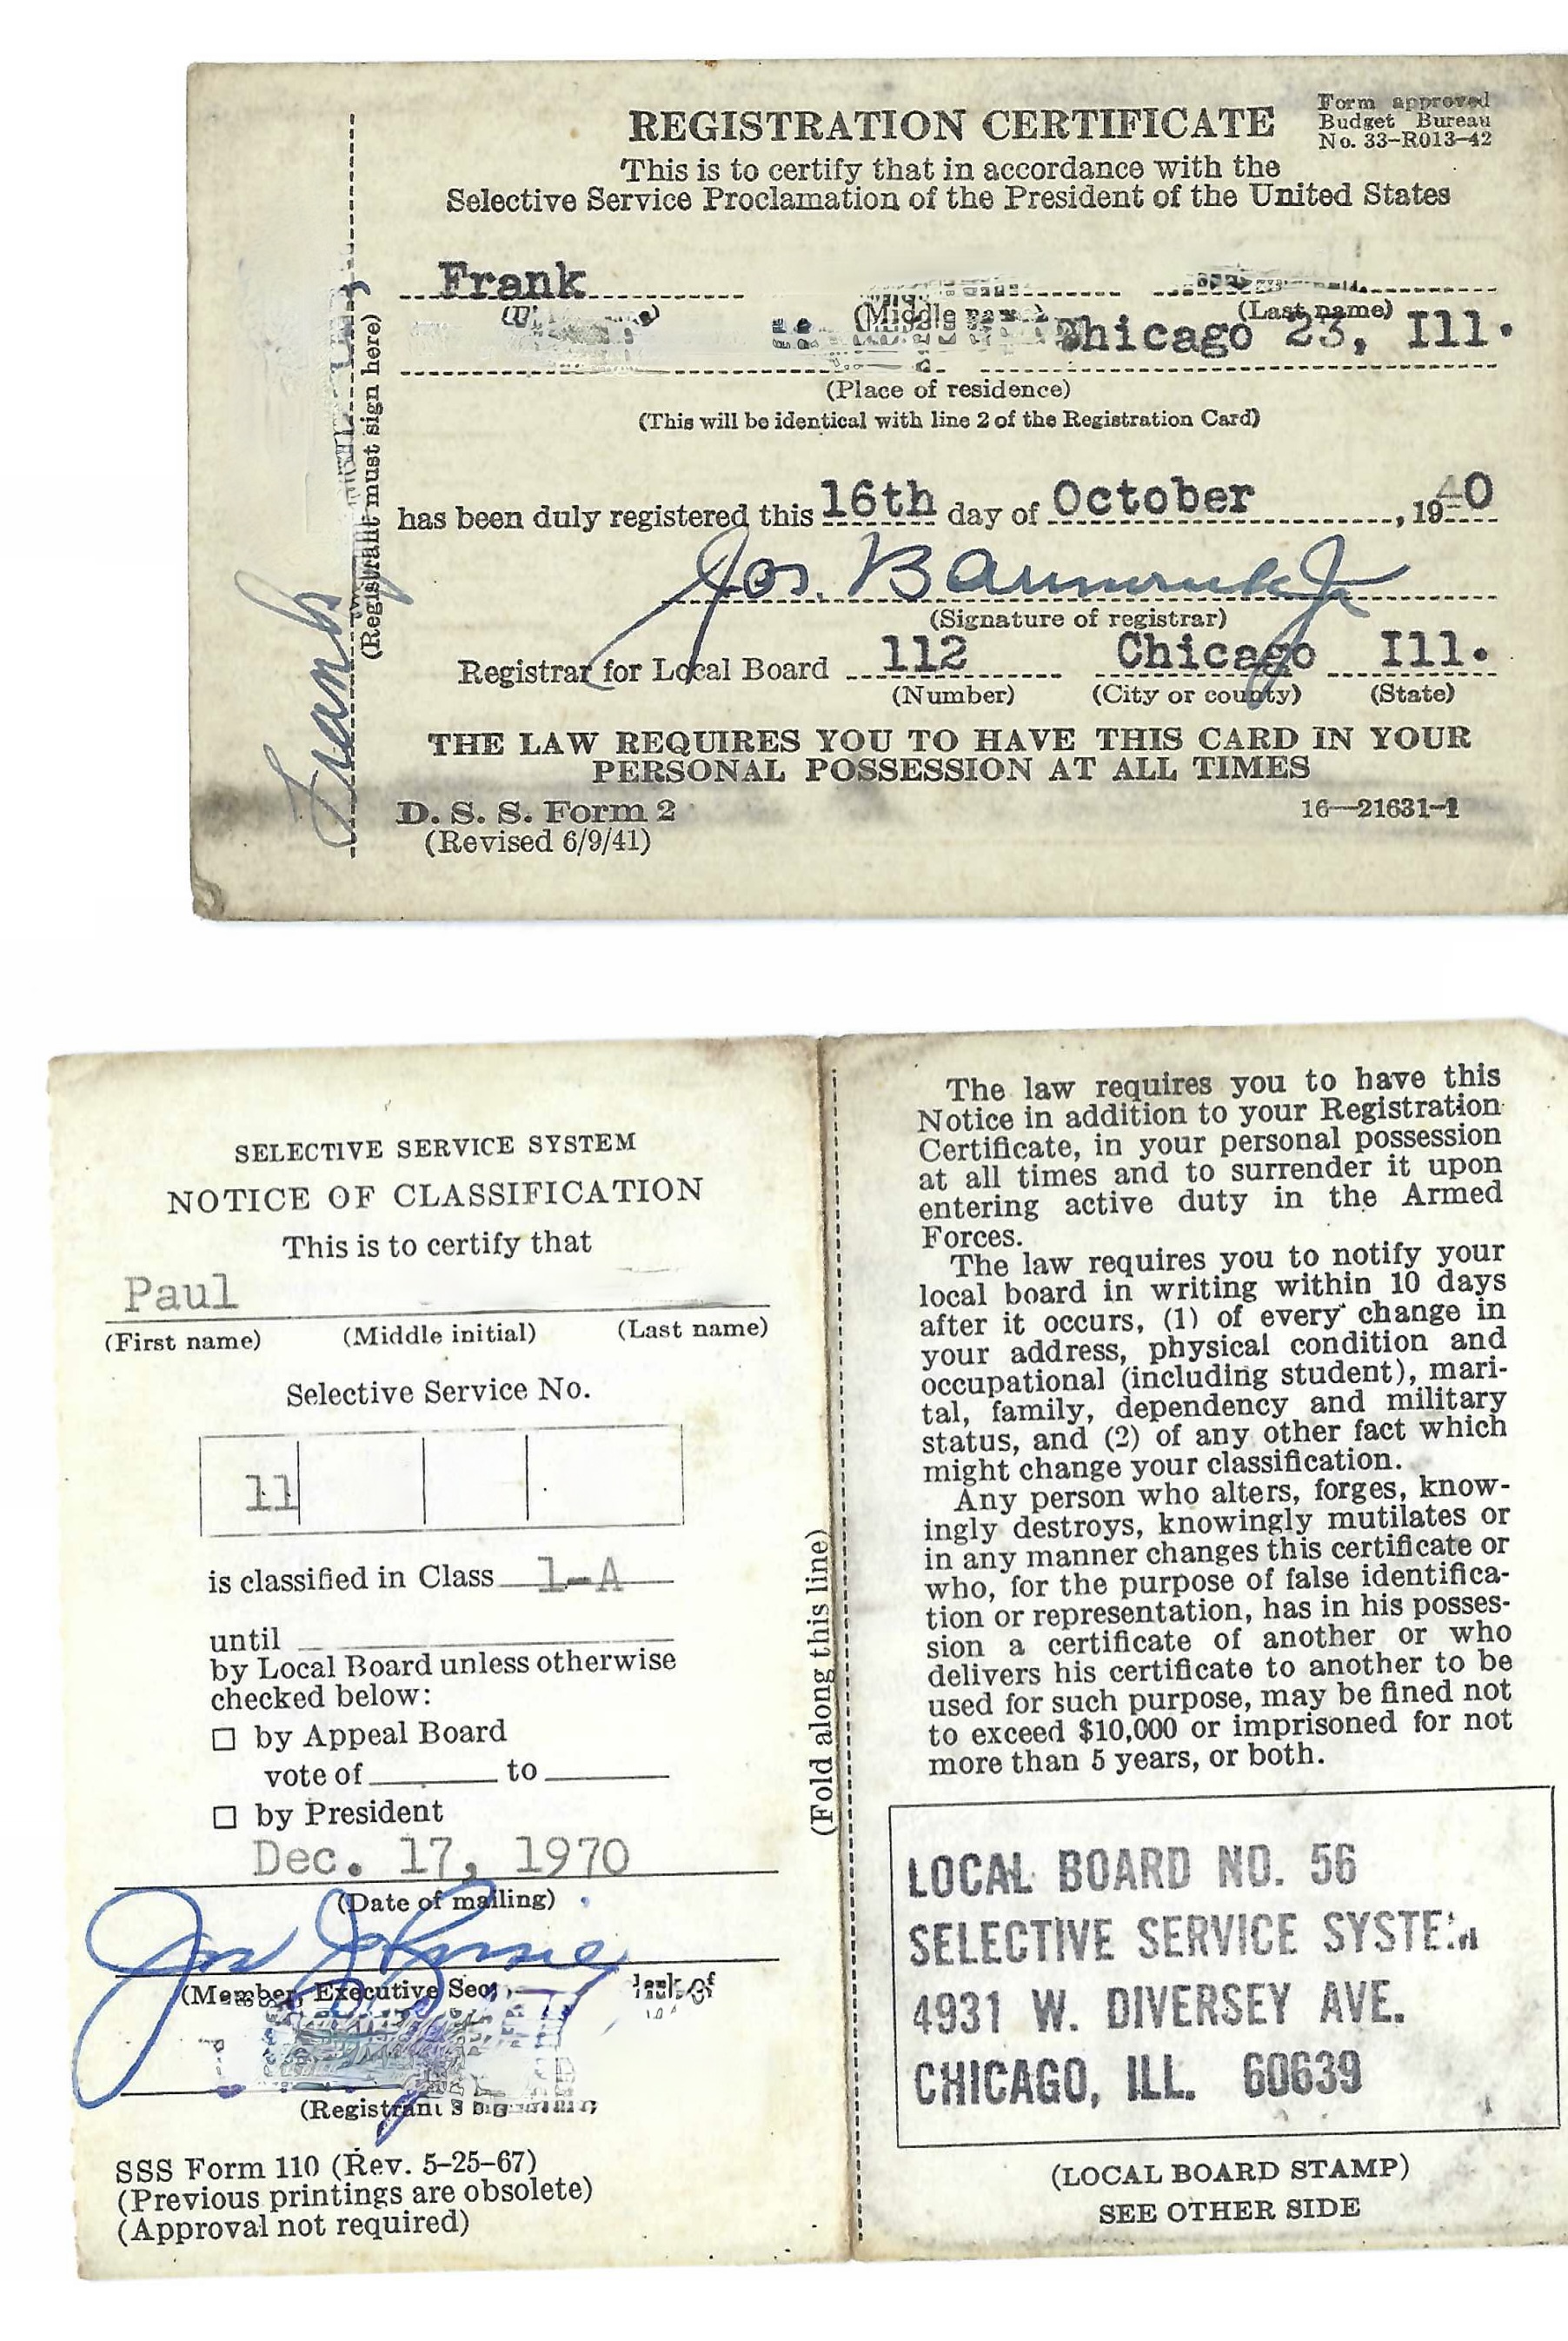 REGISTRATION CERTIFICATE
Form approved
Budget Bureau
No. 33-R013-42
This is to certify that in accordance with the
Selective Service Proclamation of the President of the United States
Frank
(Middle
(Last name)
Chicago 23, Ill.
(Place of residence)
(This will be identical with line 2 of the Registration Card)
has been duly registered this 16th day of October, 1940
Jos.
(Signature of registrar)
Registrar for Local Board 112 Chicago Ill.
(Number) (City or county) (State)
THE LAW REQUIRES YOU TO HAVE THIS CARD IN YOUR
PERSONAL POSSESSION AT ALL TIMES
D. S. S. Form 2
(Revised 6/9/41)
16—21631-1
(Registrant must sign here)
Frank
SELECTIVE SERVICE SYSTEM
NOTICE OF CLASSIFICATION
This is to certify that
Paul
(First name) (Middle initial) (Last name)
Selective Service No.
11
is classified in Class 1-A
until
by Local Board unless otherwise
checked below:
☐ by Appeal Board
vote of to
☐ by President
Dec. 17, 1970
(Date of mailing)
(Member, Executive Sec
SSS Form 110 (Rev. 5-25-67)
(Previous printings are obsolete)
(Approval not required)
(Fold along this line)
The law requires you to have this
Notice in addition to your Registration
Certificate, in your personal possession
at all times and to surrender it upon
entering active duty in the Armed
Forces.
The law requires you to notify your
local board in writing within 10 days
after it occurs, (1) of every change in
your address, physical condition and
occupational (including student), mari-
tal, family, dependency and military
status, and (2) of any other fact which
might change your classification.
Any person who alters, forges, know-
ingly destroys, knowingly mutilates or
in any manner changes this certificate or
who, for the purpose of false identifica-
tion or representation, has in his posses-
sion a certificate of another or who
delivers his certificate to another to be
used for such purpose, may be fined not
to exceed $10,000 or imprisoned for not
more than 5 years, or both.
LOCAL BOARD NO. 56
SELECTIVE SERVICE SYSTEM
4931 W. DIVERSEY AVE.
CHICAGO, ILL. 60639
(LOCAL BOARD STAMP)
SEE OTHER SIDE